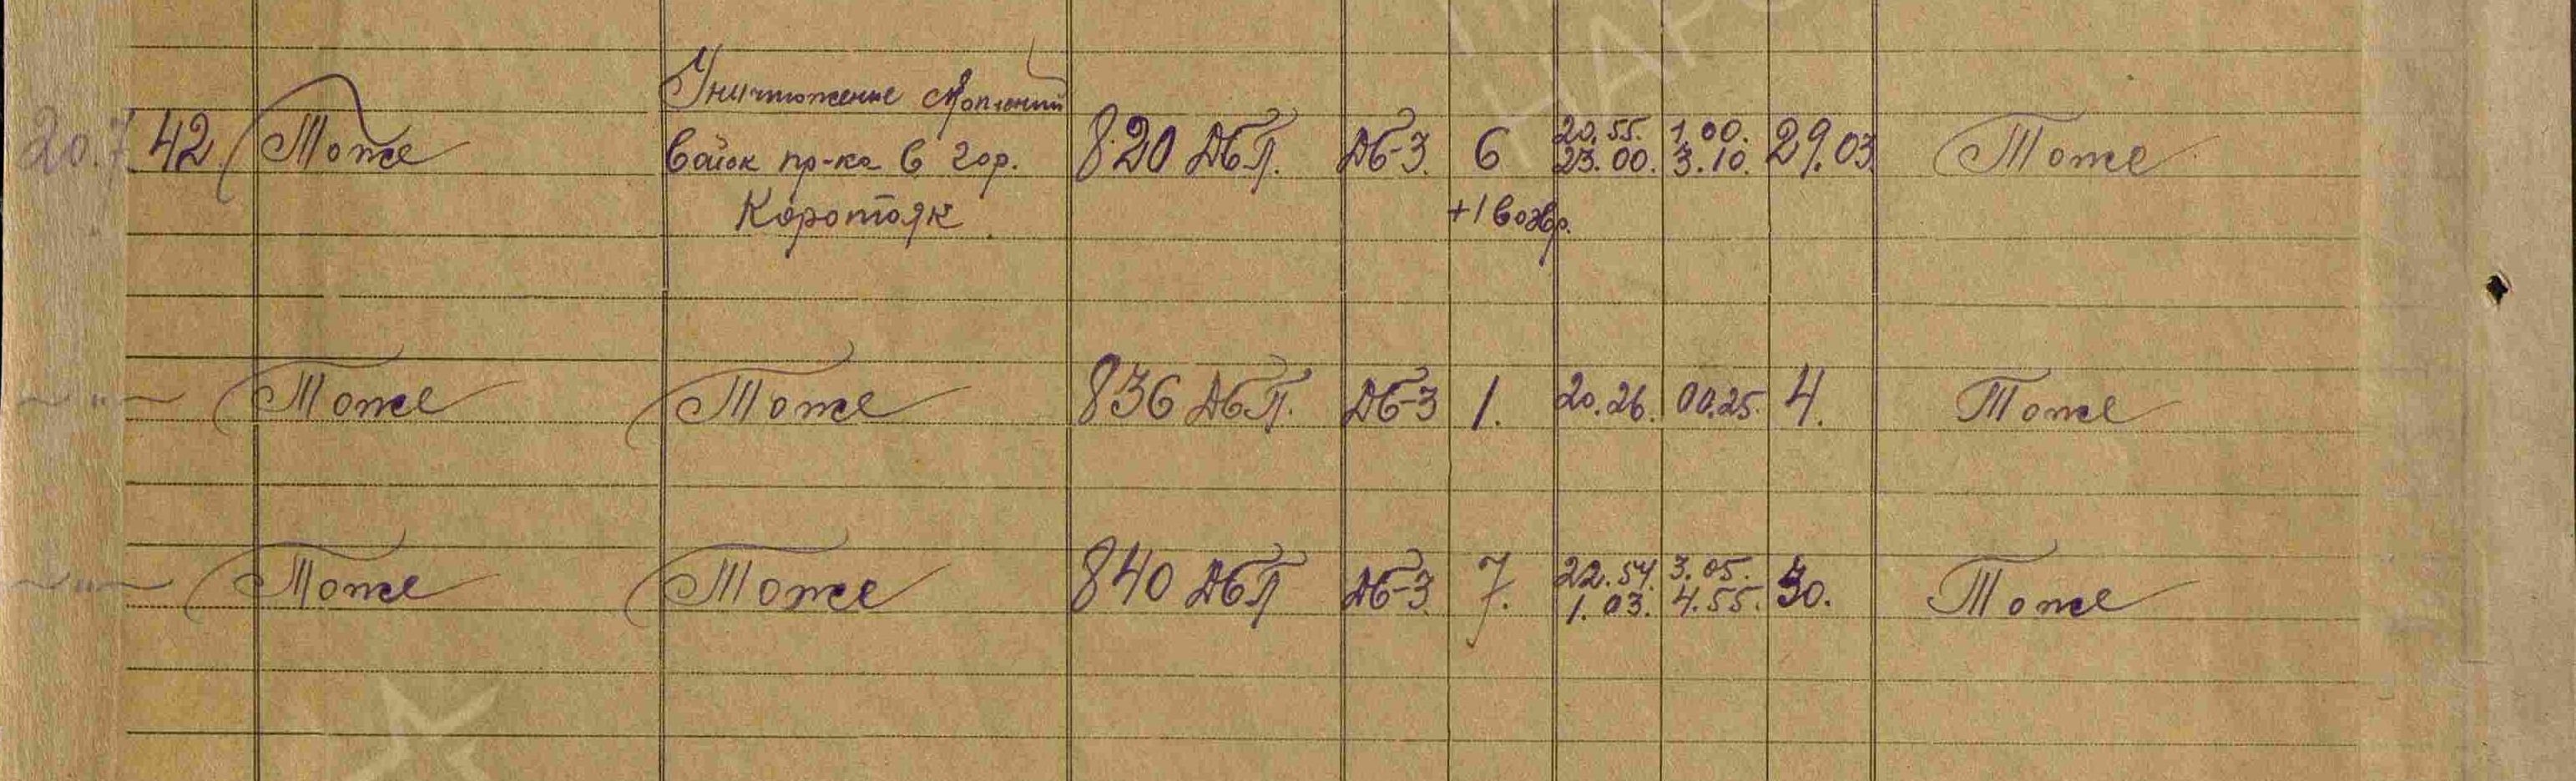 Уничтожение скоплений
20.7.42. Тоже войск пр-ка в гор. 820 ДБП. ДБ-3. 6 20.55. 1.00. 29.03. Тоже
23.00. 3.10.
Коротояк. +1 возвр.
~"~ Тоже Тоже 836 ДБП. ДБ-3 1. 20.26. 00.25. 4. Тоже
~"~ Тоже Тоже 840 ДБП ДБ-3. 7. 22.54. 3.05. 30. Тоже
1.03. 4.55.